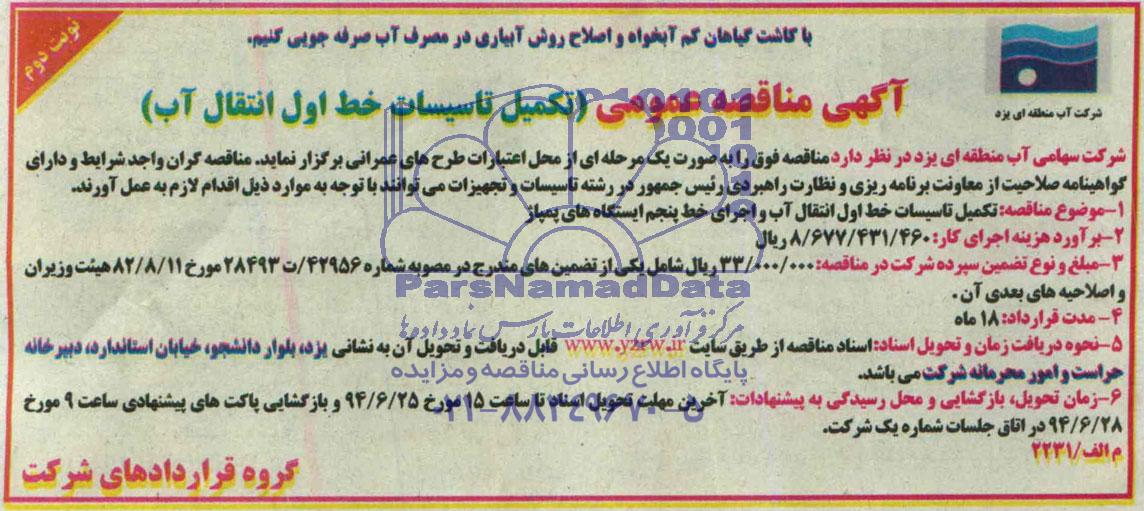 نوبت دوم
با کاشت گیاهان کم آبخواه و اصلاح روش آبیاری در مصرف آب صرفه جویی کنیم.
شرکت آب منطقه ای یزد
آگهی مناقصه عمومی (تکمیل تاسیسات خط اول انتقال آب)
شرکت سهامی آب منطقه ای یزد در نظر دارد مناقصه فوق را به صورت یک مرحله ای از محل اعتبارات طرح های عمرانی برگزار نماید. مناقصه گران واجد شرایط و دارای
گواهینامه صلاحیت از معاونت برنامه ریزی و نظارت راهبردی رئیس جمهور در رشته تاسیسات و تجهیزات می توانند با توجه به موارد ذیل اقدام لازم به عمل آورند.
۱-موضوع مناقصه: تکمیل تاسیسات خط اول انتقال آب و اجرای خط پنجم ایستگاه های پمپاژ
۲-برآورد هزینه اجرای کار: ۸/۶۷۷/۴۳۱/۴۶۰ ریال
۳-مبلغ و نوع تضمین سپرده شرکت در مناقصه: ۳۳/۰۰۰/۰۰۰ ریال شامل یکی از تضمین های مندرج در مصوبه شماره ۴۲۹۵۶/ت ۲۸۴۹۳ مورخ ۸۲/۸/۱۱ هیئت وزیران
و اصلاحیه های بعدی آن.
۴- مدت قرارداد: ۱۸ ماه
۵-نحوه دریافت زمان و تحویل اسناد: اسناد مناقصه از طریق سایت www.yzrw.ir قابل دریافت و تحویل آن به نشانی یزد، بلوار دانشجو، خیابان استاندارد، دبیرخانه
حراست و امور محرمانه شرکت می باشد.
۶-زمان تحویل، بازگشایی و محل رسیدگی به پیشنهادات: آخرین مهلت تحویل اسناد تا ساعت ۱۵ مورخ ۹۴/۶/۲۵ و بازگشایی پاکت های پیشنهادی ساعت ۹ مورخ
۹۴/۶/۲۸ در اتاق جلسات شماره یک شرکت.
م الف/۲۲۳۱
گروه قراردادهای شرکت
ParsNamadData
مرکز فرآوری اطلاعات پارس نماد داده ها
پایگاه اطلاع رسانی مناقصه و مزایده